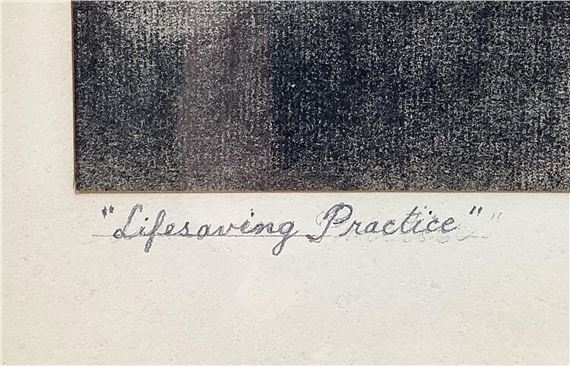 "Lifesaving Practice" "